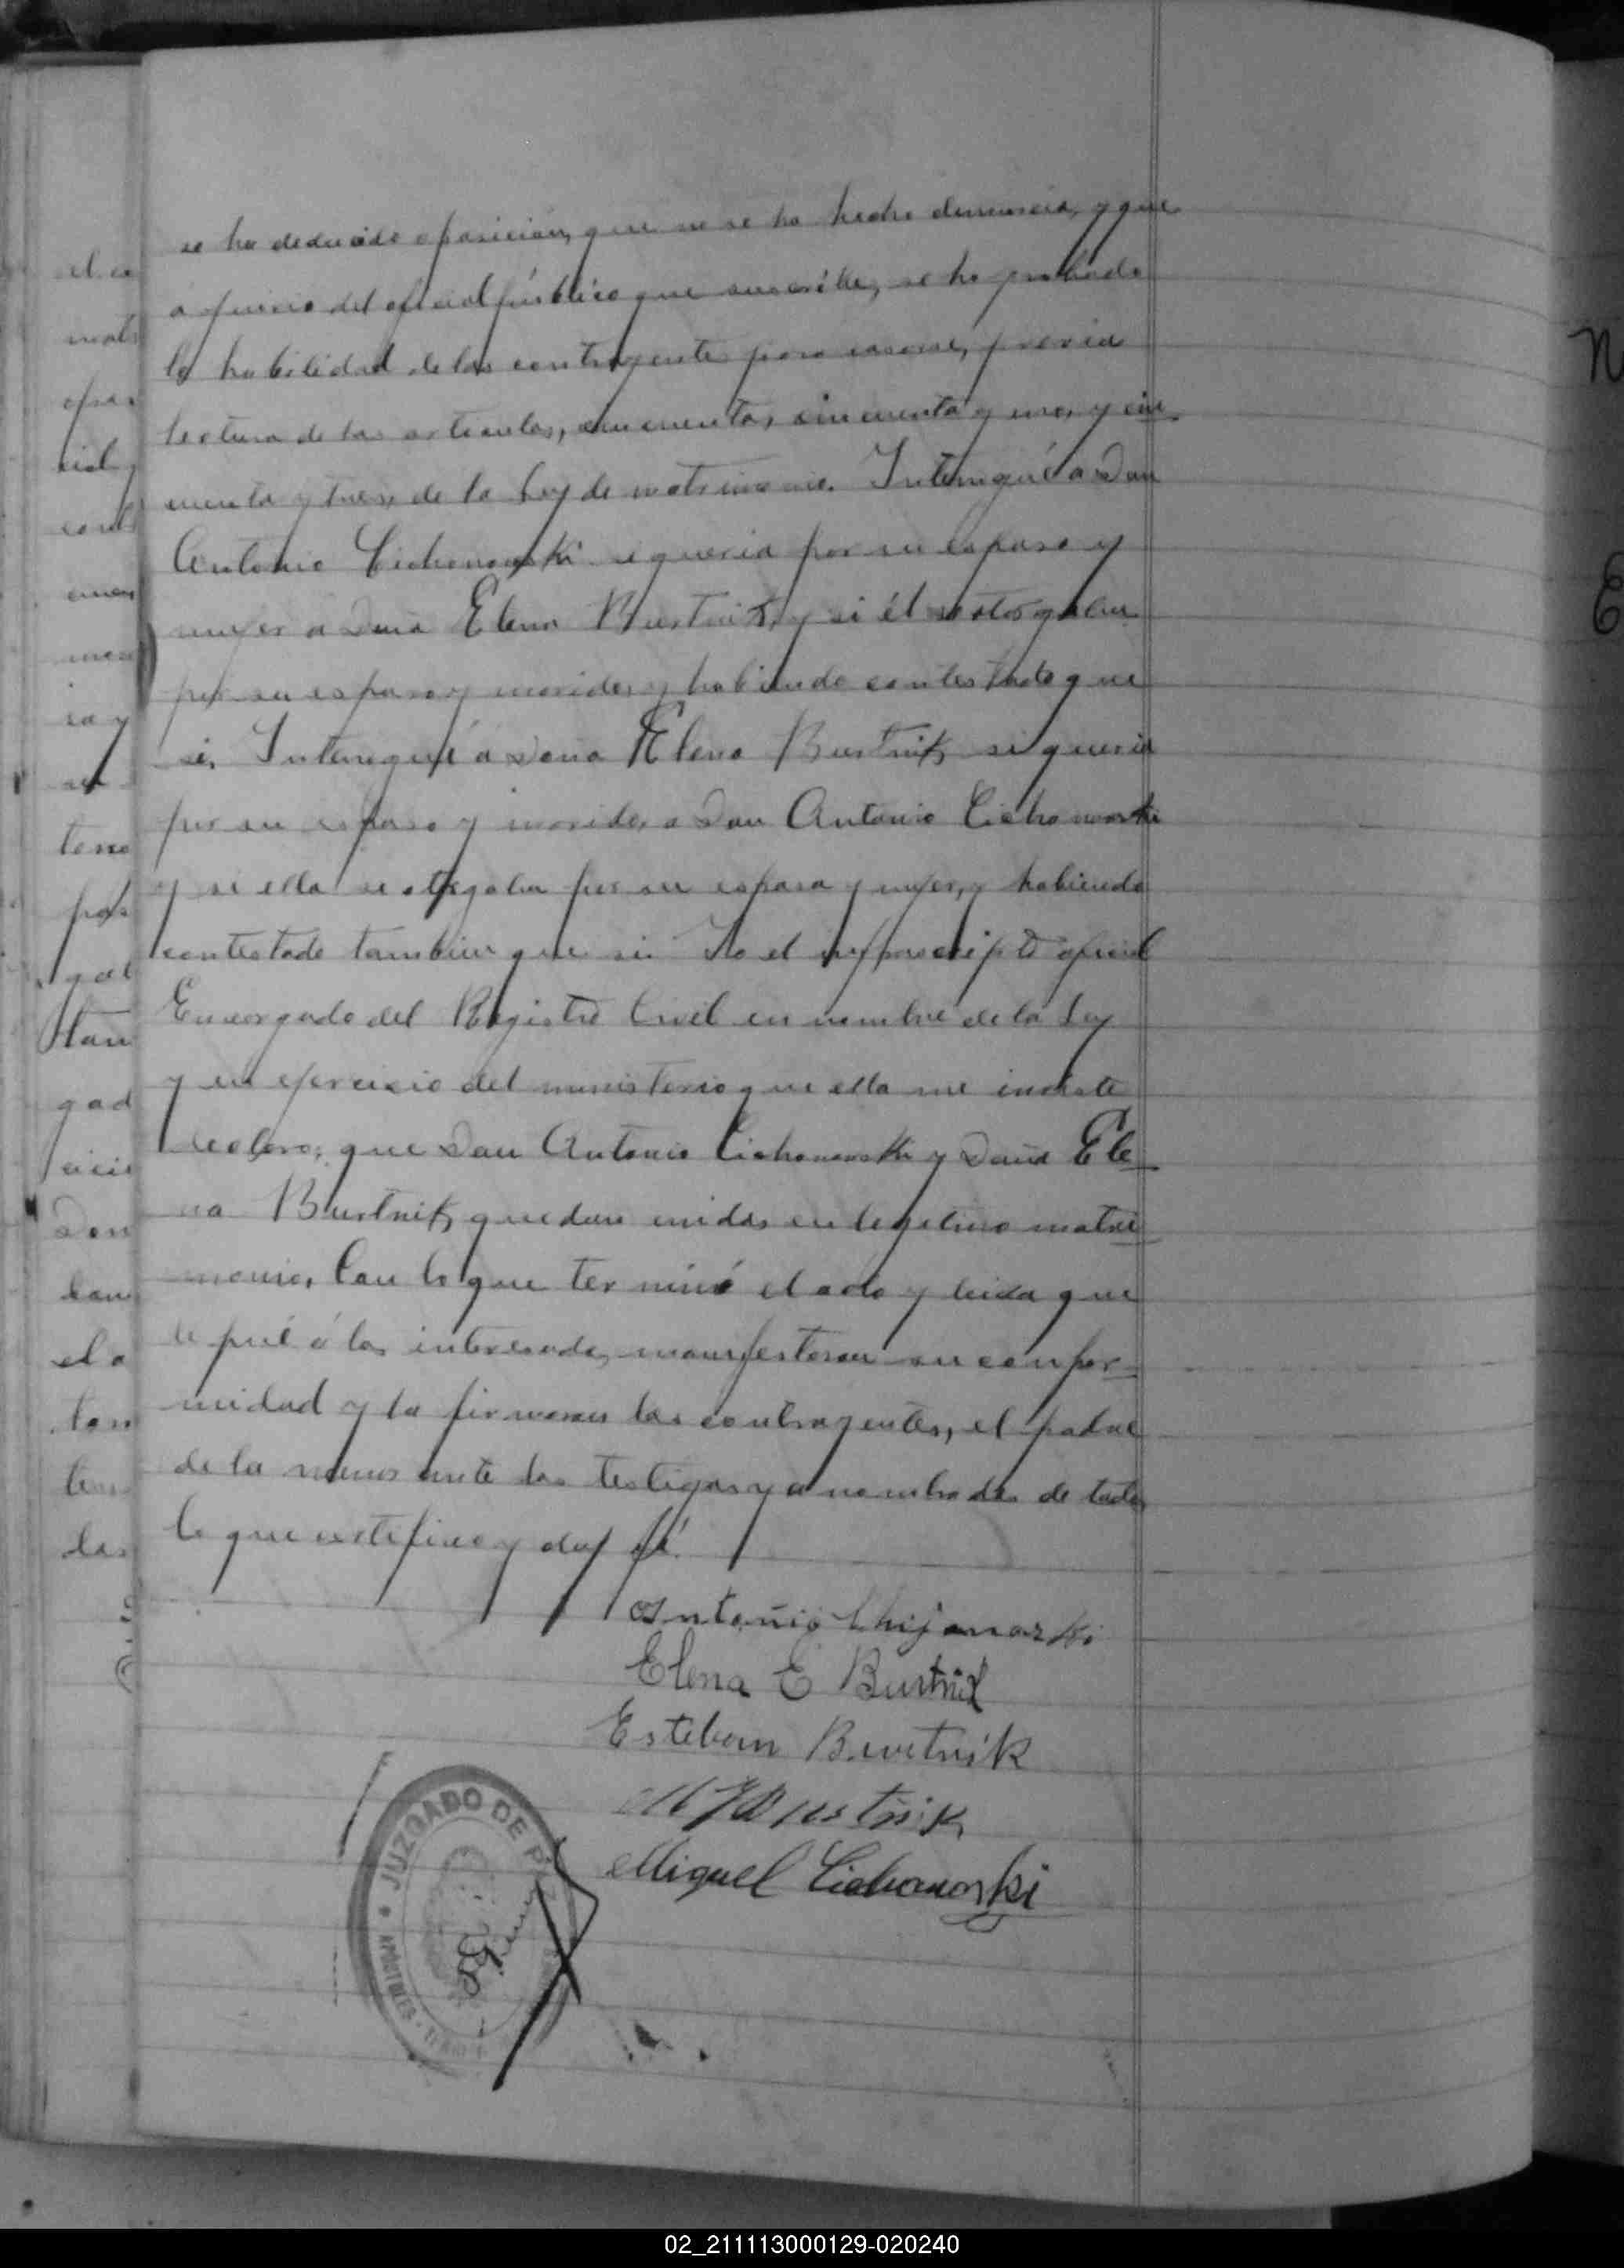 se ha deducido oposición, que no se ha hecho denuncia, y que
a juicio del oficial público que suscribe, se ha probado
la habilidad de los contrayentes para casarse, previa
lectura de los articulos, cincuenta, cincuenta y uno, y cin_
cuenta y tres, de la Ley de matrimonio. Interrogué a Don
Antonio Cichanowski si queria por su esposa y
mujer a Doña Elena Burtnik, y si él se otorgaba
por su esposo y marido, y habiendo contestado que
si. Interrogué á Doña Elena Burtnik si queria
por su esposo y marido, a Don Antonio Cichanowski
y si ella se otorgaba por su esposa y mujer, y habiendo
contestado tambien que si. Yo el infrascripto oficial
Encargado del Registro Civil en nombre de la Ley
y en ejercicio del ministerio que ella me
declaro; que Don Antonio Cichanowski y Doña Ele_
na Burtnik, quedan unidos en legitimo matri_
monio. Con lo que terminó el acto y leida que
le fué á los interesados, manifestaron su confor_
midad y la firmaron los contrayentes, el padre
de la menor ante los testigos ya nombrados de todo
lo que certifico y doy fé.
Antonio
Elena E Burtnik
Esteban Burtnik
Burtnik
Miguel Cichanowski
JUZGADO DE PAZ
APÓSTOLES
el
mat
opos
cial
y
su
por
gad
Don
el a
los
02_211113000129-020240